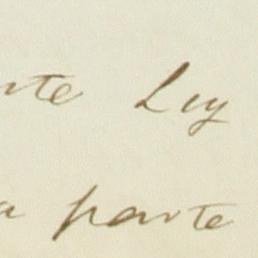 rte Ley
a parte